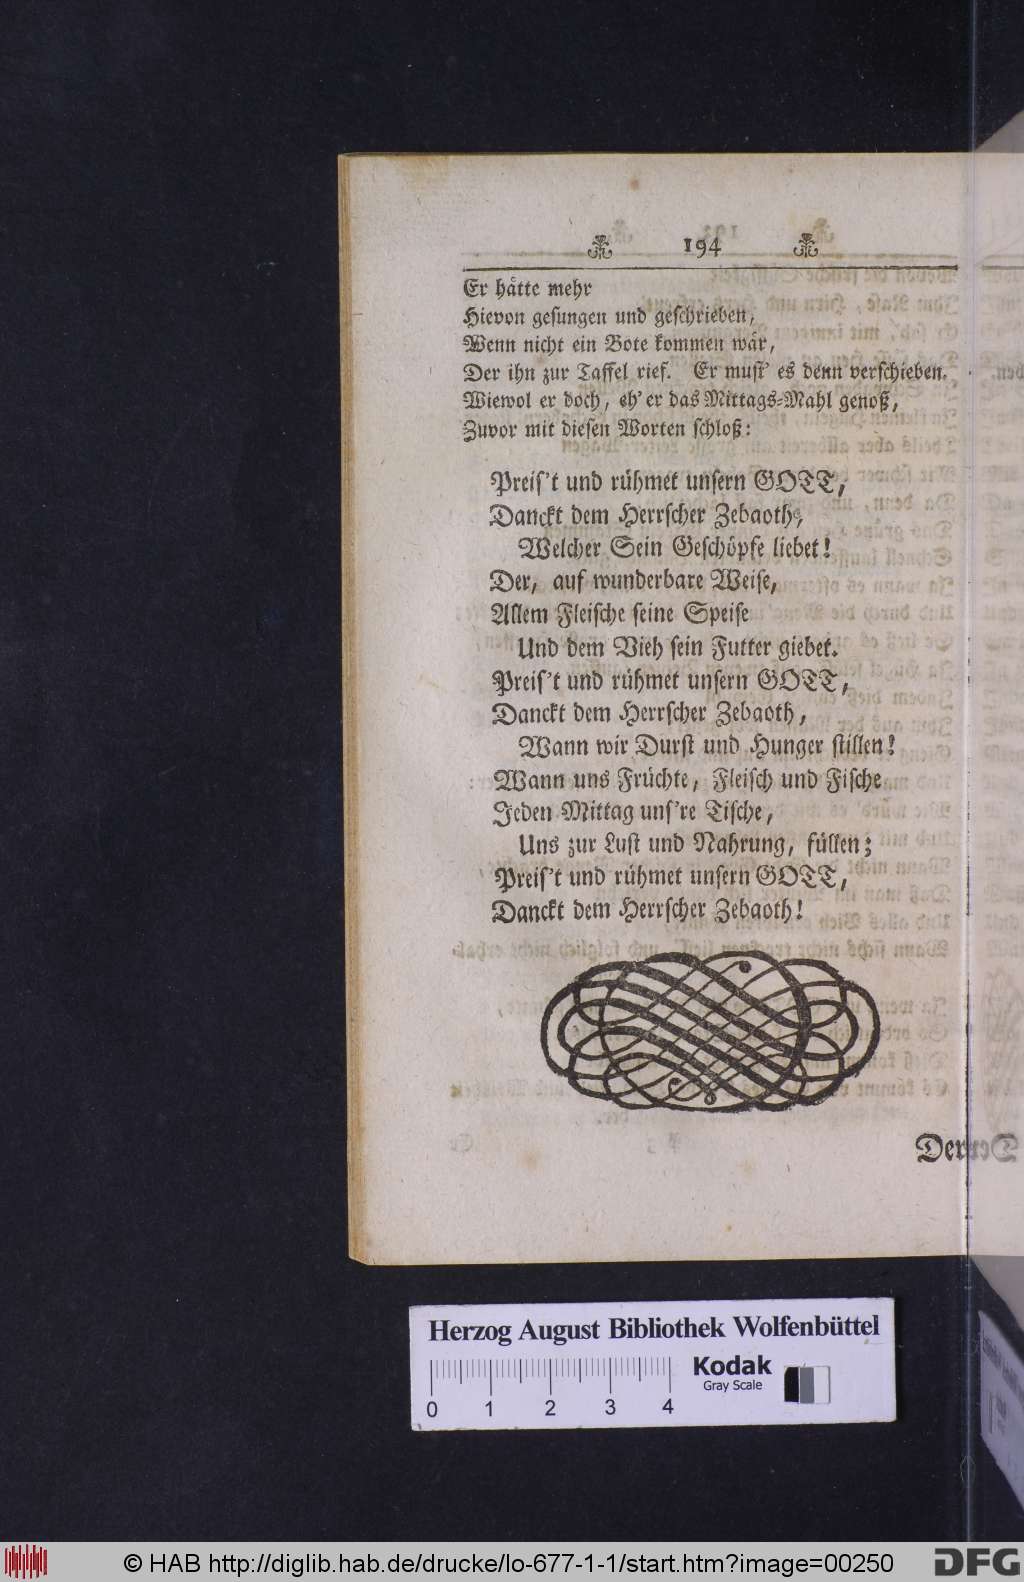 194
Er hätte mehr
Hievon gesungen und geschrieben,
Wenn nicht ein Bote kommen wär,
Der ihn zur Taffel rief. Er must' es denn verschieben.
Wiewol er doch, eh' er das Mittags-Mahl genoß,
Zuvor mit diesen Worten schloß:
Preis't und rühmet unsern GOTT,
Danckt dem Herrscher Zebaoth,
Welcher Sein Geschöpfe liebet!
Der, auf wunderbare Weise,
Allem Fleische seine Speise
Und dem Vieh sein Futter giebet.
Preis't und rühmet unsern GOTT,
Danckt dem Herrscher Zebaoth,
Wann wir Durst und Hunger stillen!
Wann uns Früchte, Fleisch und Fische
Jeden Mittag uns're Tische,
Uns zur Lust und Nahrung, füllen;
Preis't und rühmet unsern GOTT,
Danckt dem Herrscher Zebaoth!
Der
Herzog August Bibliothek Wolfenbüttel
Kodak
Gray Scale
0 1 2 3 4
© HAB http://diglib.hab.de/drucke/lo-677-1-1/start.htm?image=00250
DFG